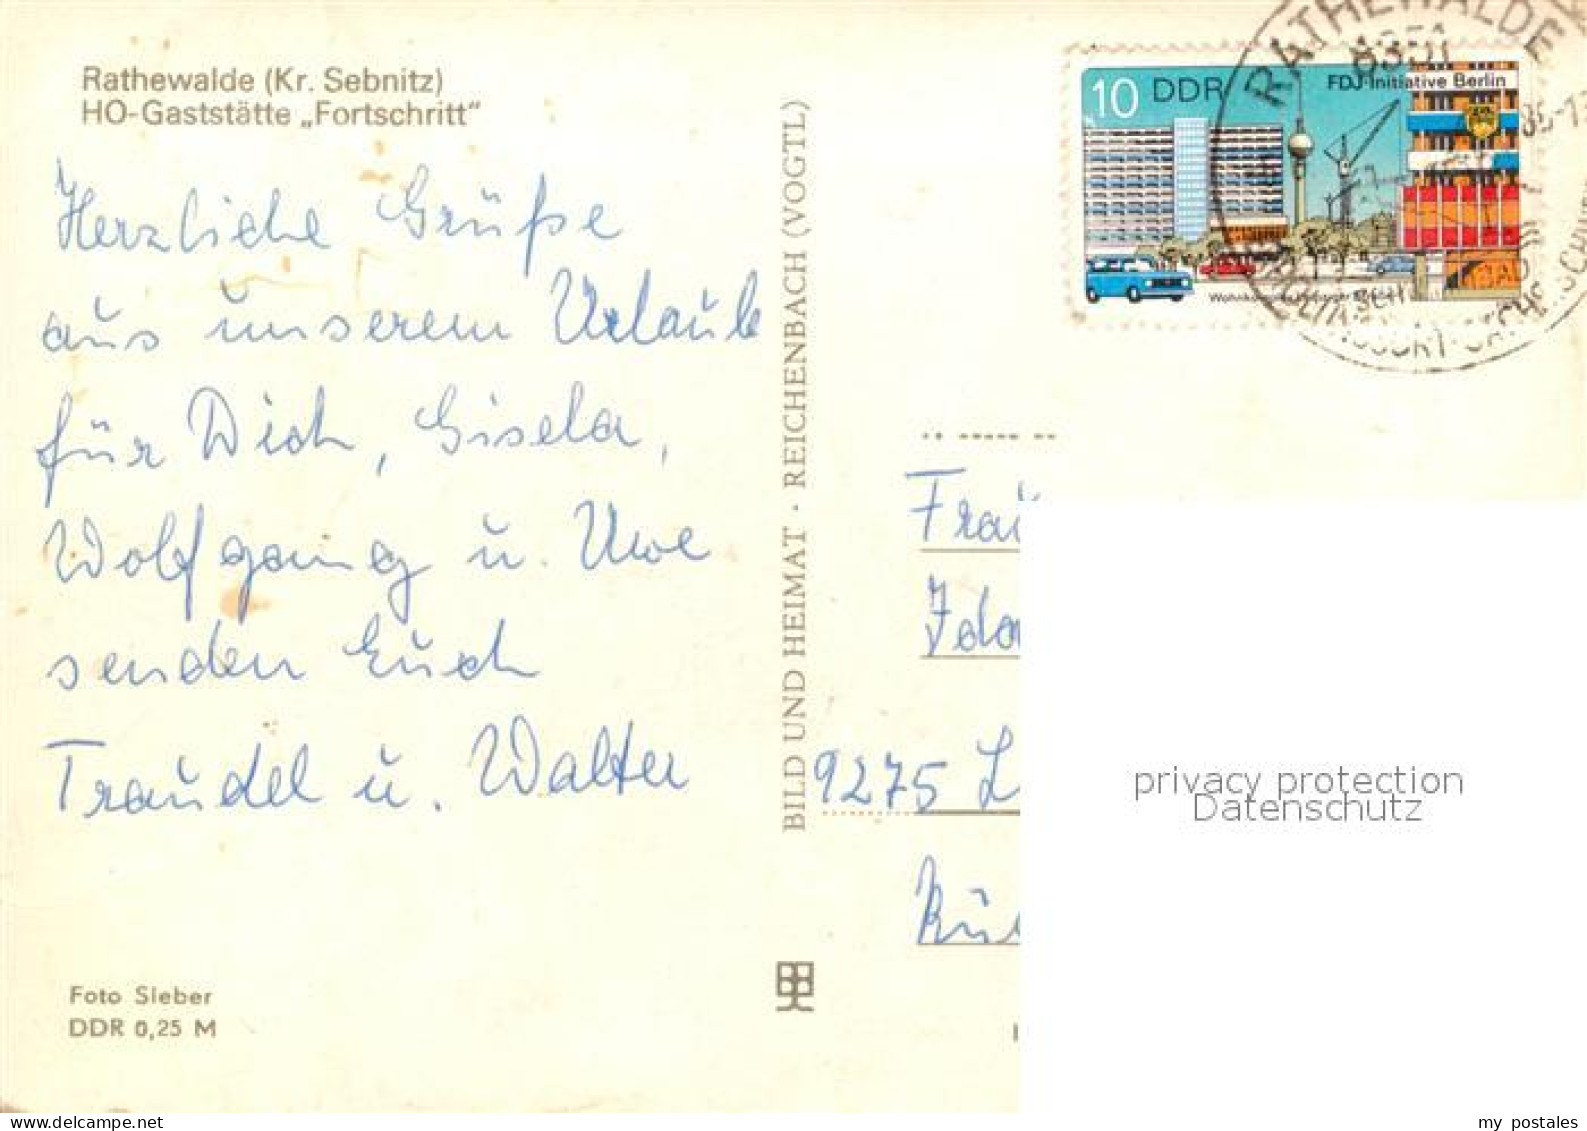 Rathewalde (Kr. Sebnitz)
HO-Gaststätte „Fortschritt"
Herzliche Grüße
aus unserem Urlaub
für Dich, Gisela,
Wolfgang u. Uwe
senden Euch
Traudel u. Walter
Foto Sieber
DDR 0,25 M
BILD UND HEIMAT · REICHENBACH (VOGTL)
RATHEWALDE
8351
10 DDR
FDJ-Initiative Berlin
Frau
Ida
9275 L
privacy protection
Datenschutz
my postales